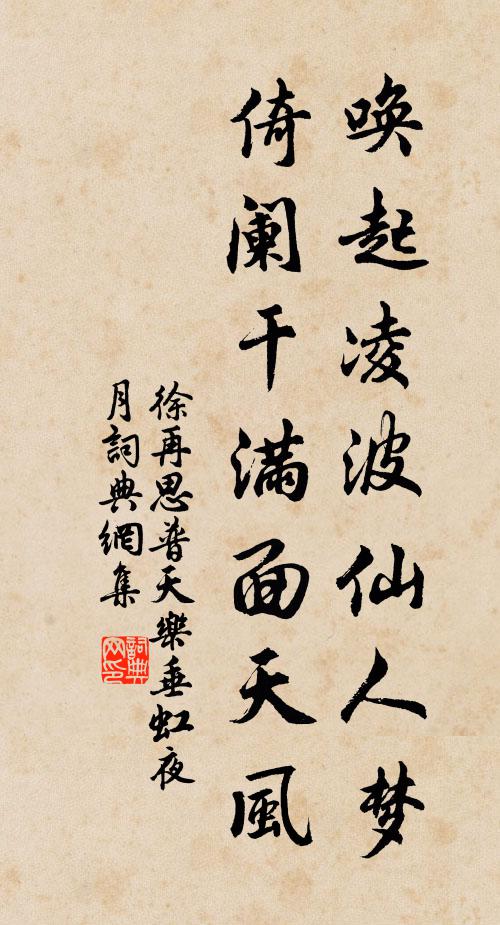 唤起凌波仙人梦
倚阑干满面天風
徐再思普天樂垂虹夜
月詞典網集
詞典
网印